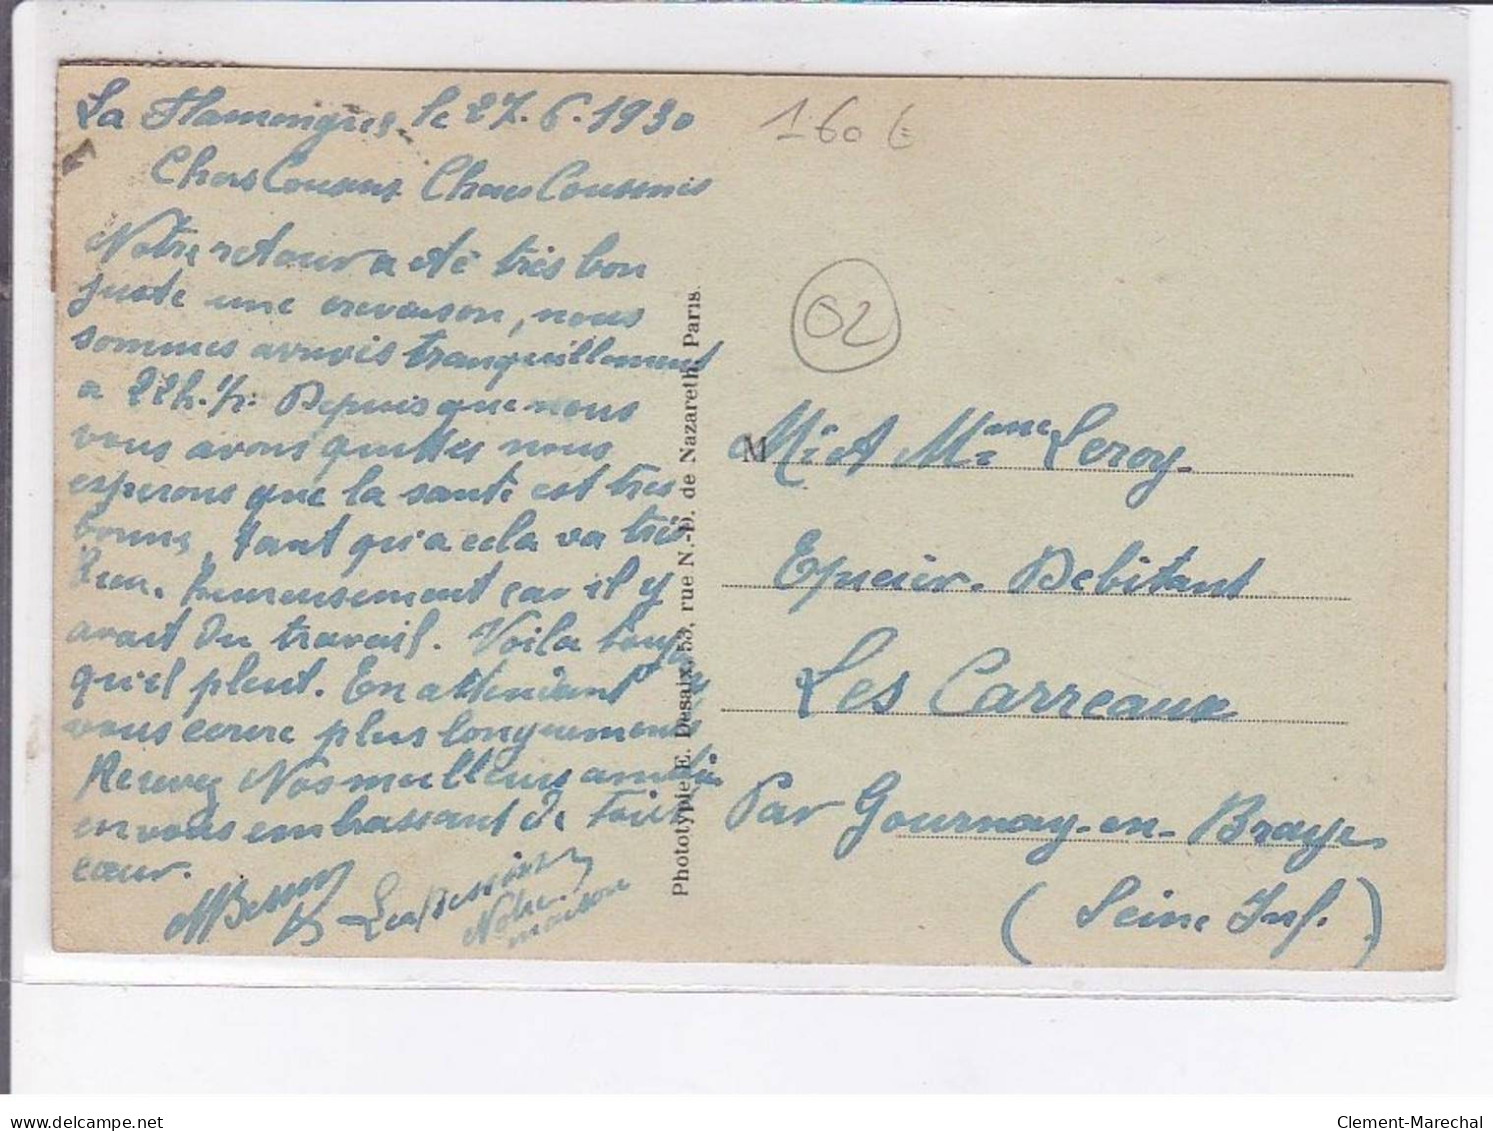 La Flamengries le 27.6.1930
Chers Cousins Chers Cousines
Notre retour a été très bon
juste une crevaison, nous
sommes arrivis tranquillement
a 22h.1/2. Depuis que nous
vous avons quittes nous
esperons que la santé est tres
bonne, tant qu'a cela va très
bien. heureusement car il y
avait du travail. Voila
qu'il pleut. En attendant
vous ecrire plus longuements
Recevez Nos meilleurs
en vous embrassant de
cœur.
Notre
maison
Phototypie E. Desaix, 53, rue N.-D. de Nazareth, Paris.
160 €
02
M Mr et Mme Leroy.
Epicier. Debitant
Les Carreaux
Par Gournay-en-Braye
(Seine Inf.)
delcampe.net
Clement-Marechal